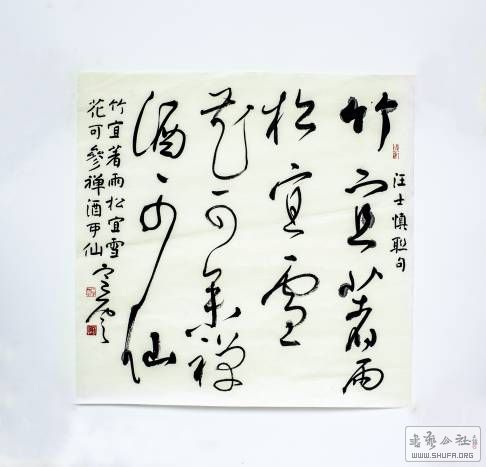 竹宜著雨
松宜雪
花可参禅
酒可仙
汪士慎联句
竹宜著雨松宜雪
花可參禅酒可仙
WWW.SHUFA.ORG